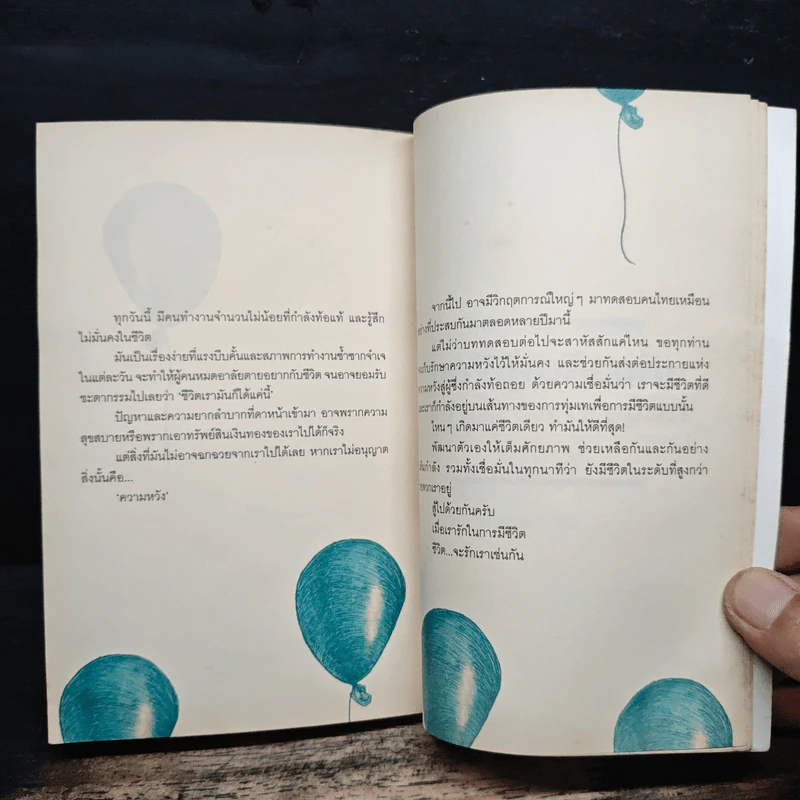 ทุกวันนี้ มีคนทำงานจำนวนไม่น้อยที่กำลังท้อแท้ และรู้สึก
ไม่มั่นคงในชีวิต
มันเป็นเรื่องง่ายที่แรงบีบคั้นและสภาพการทำงานซ้ำซากจำเจ
ในแต่ละวัน จะทำให้ผู้คนหมดอาลัยตายอยากกับชีวิต จนอาจยอมรับ
ชะตากรรมไปเลยว่า ‘ชีวิตเรามันก็ได้แค่นี้’
ปัญหาและความยากลำบากที่ดาหน้าเข้ามา อาจพรากความ
สุขสบายหรือพรากเอาทรัพย์สินเงินทองของเราไปได้ก็จริง
แต่สิ่งที่มันไม่อาจฉกฉวยจากเราไปได้เลย หากเราไม่อนุญาต
สิ่งนั้นคือ...
‘ความหวัง’
จากนี้ไป อาจมีวิกฤตการณ์ใหญ่ๆ มาทดสอบคนไทยเหมือน
อย่างที่ประสบกันมาตลอดหลายปีมานี้
แต่ไม่ว่าบททดสอบต่อไปจะสาหัสสักแค่ไหน ขอทุกท่าน
เก็บรักษาความหวังไว้ให้มั่นคง และช่วยกันส่งต่อประกายแห่ง
ความหวังสู่ผู้ซึ่งกำลังท้อถอย ด้วยความเชื่อมั่นว่า เราจะมีชีวิตที่ดี
และเราก็กำลังอยู่บนเส้นทางของการทุ่มเทเพื่อการมีชีวิตแบบนั้น
ไหนๆ เกิดมาแค่ชีวิตเดียว ทำมันให้ดีที่สุด!
พัฒนาตัวเองให้เต็มศักยภาพ ช่วยเหลือกันและกันอย่าง
เต็มกำลัง รวมทั้งเชื่อมั่นในทุกนาทีว่า ยังมีชีวิตในระดับที่สูงกว่า
รอพวกเราอยู่
สู้ไปด้วยกันครับ
เมื่อเรารักในการมีชีวิต
ชีวิต...จะรักเราเช่นกัน